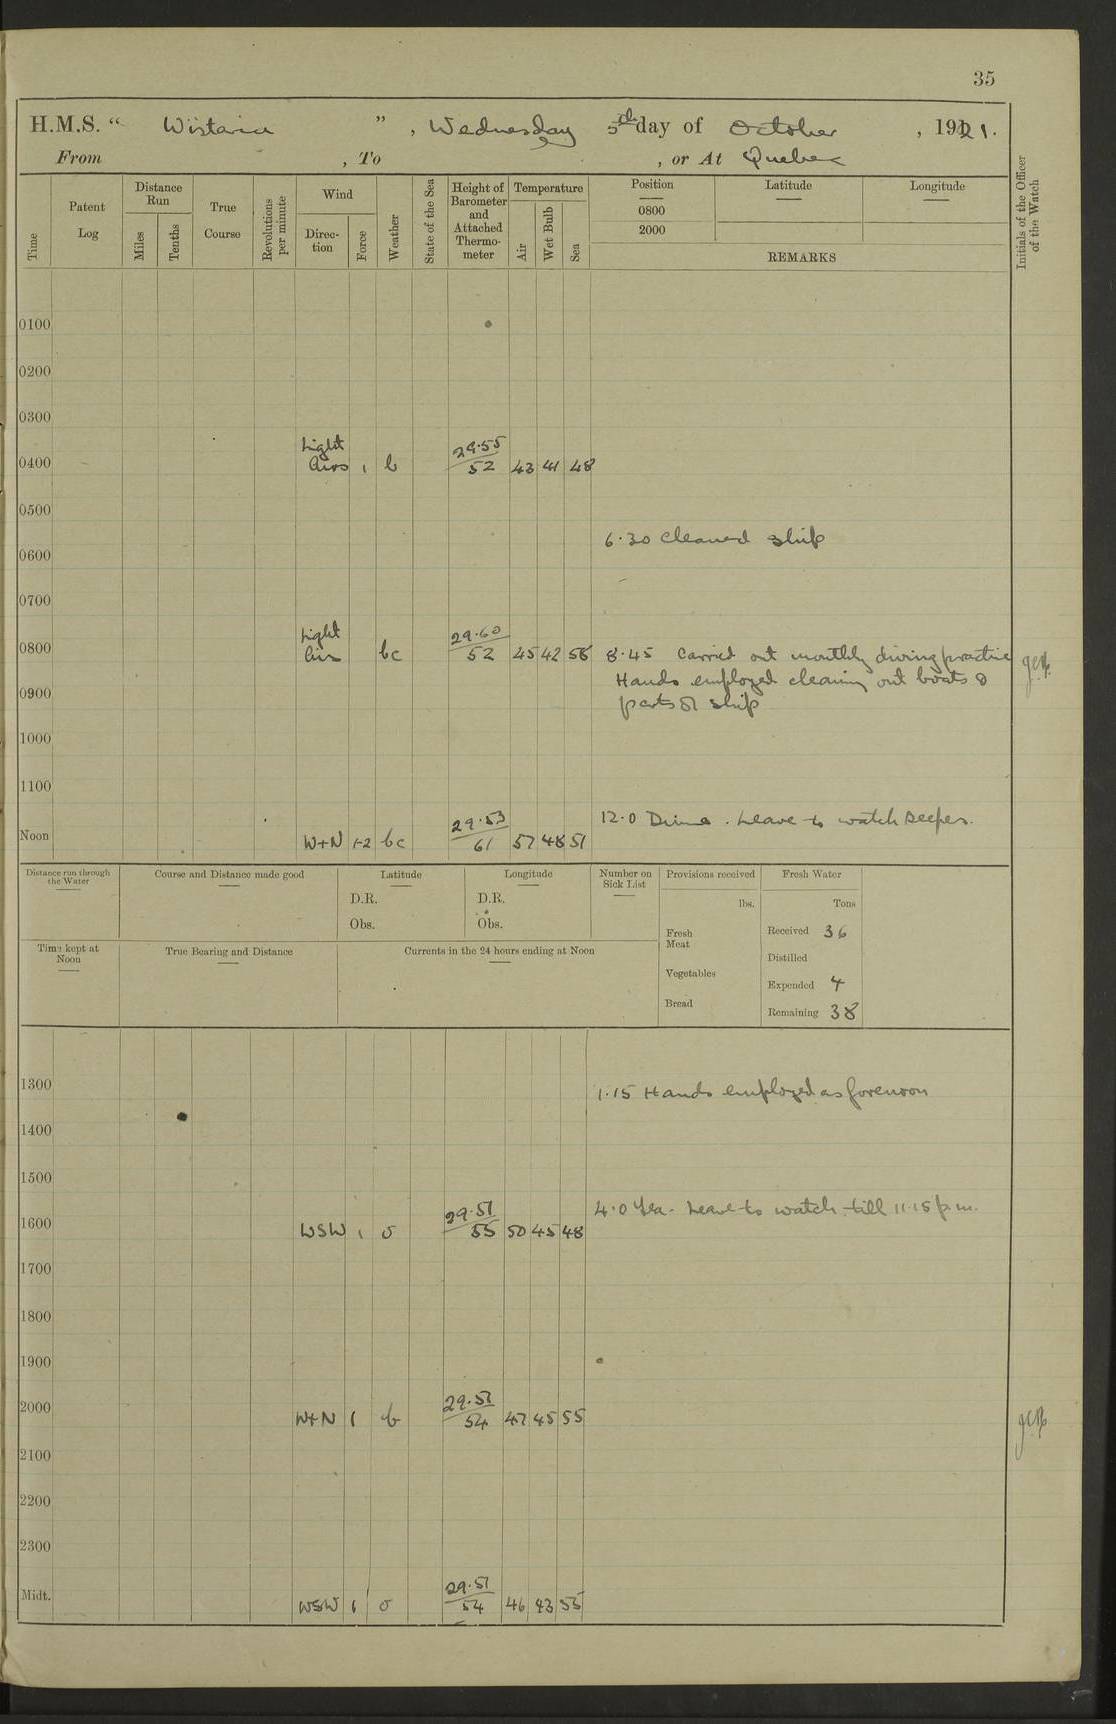 35
H.M.S. " Wistaria " , Wednesday 5th day of October , 1921.
From , To , or At Quebec
Time
Patent Log
Distance Run
Miles
Tenths
True Course
Revolutions per minute
Wind
Direc-tion
Force
Weather
State of the Sea
Height of Barometer and Attached Thermo-meter
Temperature
Air
Wet Bulb
Sea
Position
0800
2000
Latitude
Longitude
REMARKS
Initials of the Officer of the Watch
0100
0200
0300
Light 29.55
0400 Airs 1 b 52 43 41 48
0500
6.30 Cleaned ship
0600
0700
Light 29.60
0800 Airs bc 52 45 42 56 8.45 Carried out monthly diving practice
Hands employed cleaning out boats &
0900
parts of ship
1000
1100
29.53 12.0 Dinner. Leave to watch keeper.
Noon W+N 1-2 bc 61 57 48 51
Distance run through the Water
Course and Distance made good
Latitude
D.R.
Obs.
Longitude
D.R.
Obs.
Number on Sick List
Provisions received
lbs.
Fresh Meat
Vegetables
Bread
Fresh Water
Tons
Received 36
Distilled
Expended 4
Remaining 38
Time kept at Noon
True Bearing and Distance
Currents in the 24 hours ending at Noon
1300 1.15 Hands employed as forenoon
1400
1500
29.51 4.0 Tea. Leave to watch till 11.15 p.m.
1600 WSW 1 o 55 50 45 48
1700
1800
1900
29.51
2000 W+N 1 b 54 47 45 55
2100
2200
2300
29.51
Midt. WSW 1 o 54 46 43 55